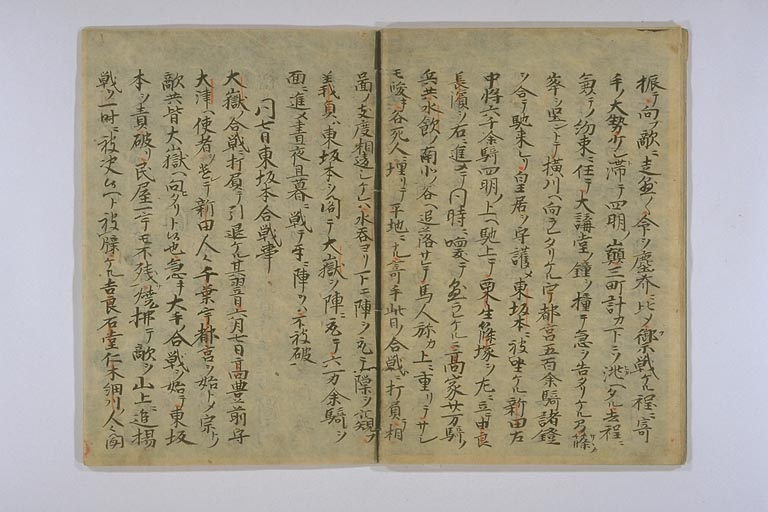 振テ向フ敵ニ走蒐リ命ヲ塵芥ニ比メ禦戦ケル程ニ寄
手ノ大勢少シ滞テ四明ノ巓三町計カ下ミソ洮ヘタル去程ニ
兼テノ約束ニ任テ大講堂ノ鐘ヲ撞テ急ヲ告タリケル篠
峯ヲ堅ントテ横川ヘ向ラレタリケル宇都宮五百余騎諸鐙
ヲ合テ馳来レリ皇居ヲ守護メ東坂本ニ被坐ケル新田左
中将六千余騎四明ノ上ヘ馳上テ栗生篠塚ヲ左ニ立由良
長濱ヲ右ニ進マテ同時ニ喚テ蒐ラレケルニ高家廿万騎ノ
兵共水飲ノ南北ノ谷ヘ追落サテ馬人弥カ上ニ重リテサシ
モ峻キ谷死人ニ埋リテ平地ニナル寄手此日ノ合戦ニ打負テ相
図ノ支度相違シケレハ水呑ヨリ下モ陣ヲ取テ敵ノ隙ヲ窺フ
義貞ハ東坂本ヲ閣テ大嶽ヲ陣ニ取テ六万余騎ヲ
面ニ進メ昼夜旦暮ニ戦テ手ニ陣ヲハ不被破
同七日東坂本合戦事
大嶽ノ合戦打負テ引退ケル其翌日六月七日高豊前守
大津ヘ使者ヲ立テ新田ノ人々千葉宇都宮ヲ始トメ宗トノ
敵共皆大嶽ヘ向タリト也急キ大手ノ合戦ヲ始テ東坂
本ヲ責破リ民屋一宇モ不残焼拂テ敵ヲ山上ニ追揚
戦ヲ一時ニ被決候ヘト被牒ケル吉良石堂仁木細川ノ人々聞